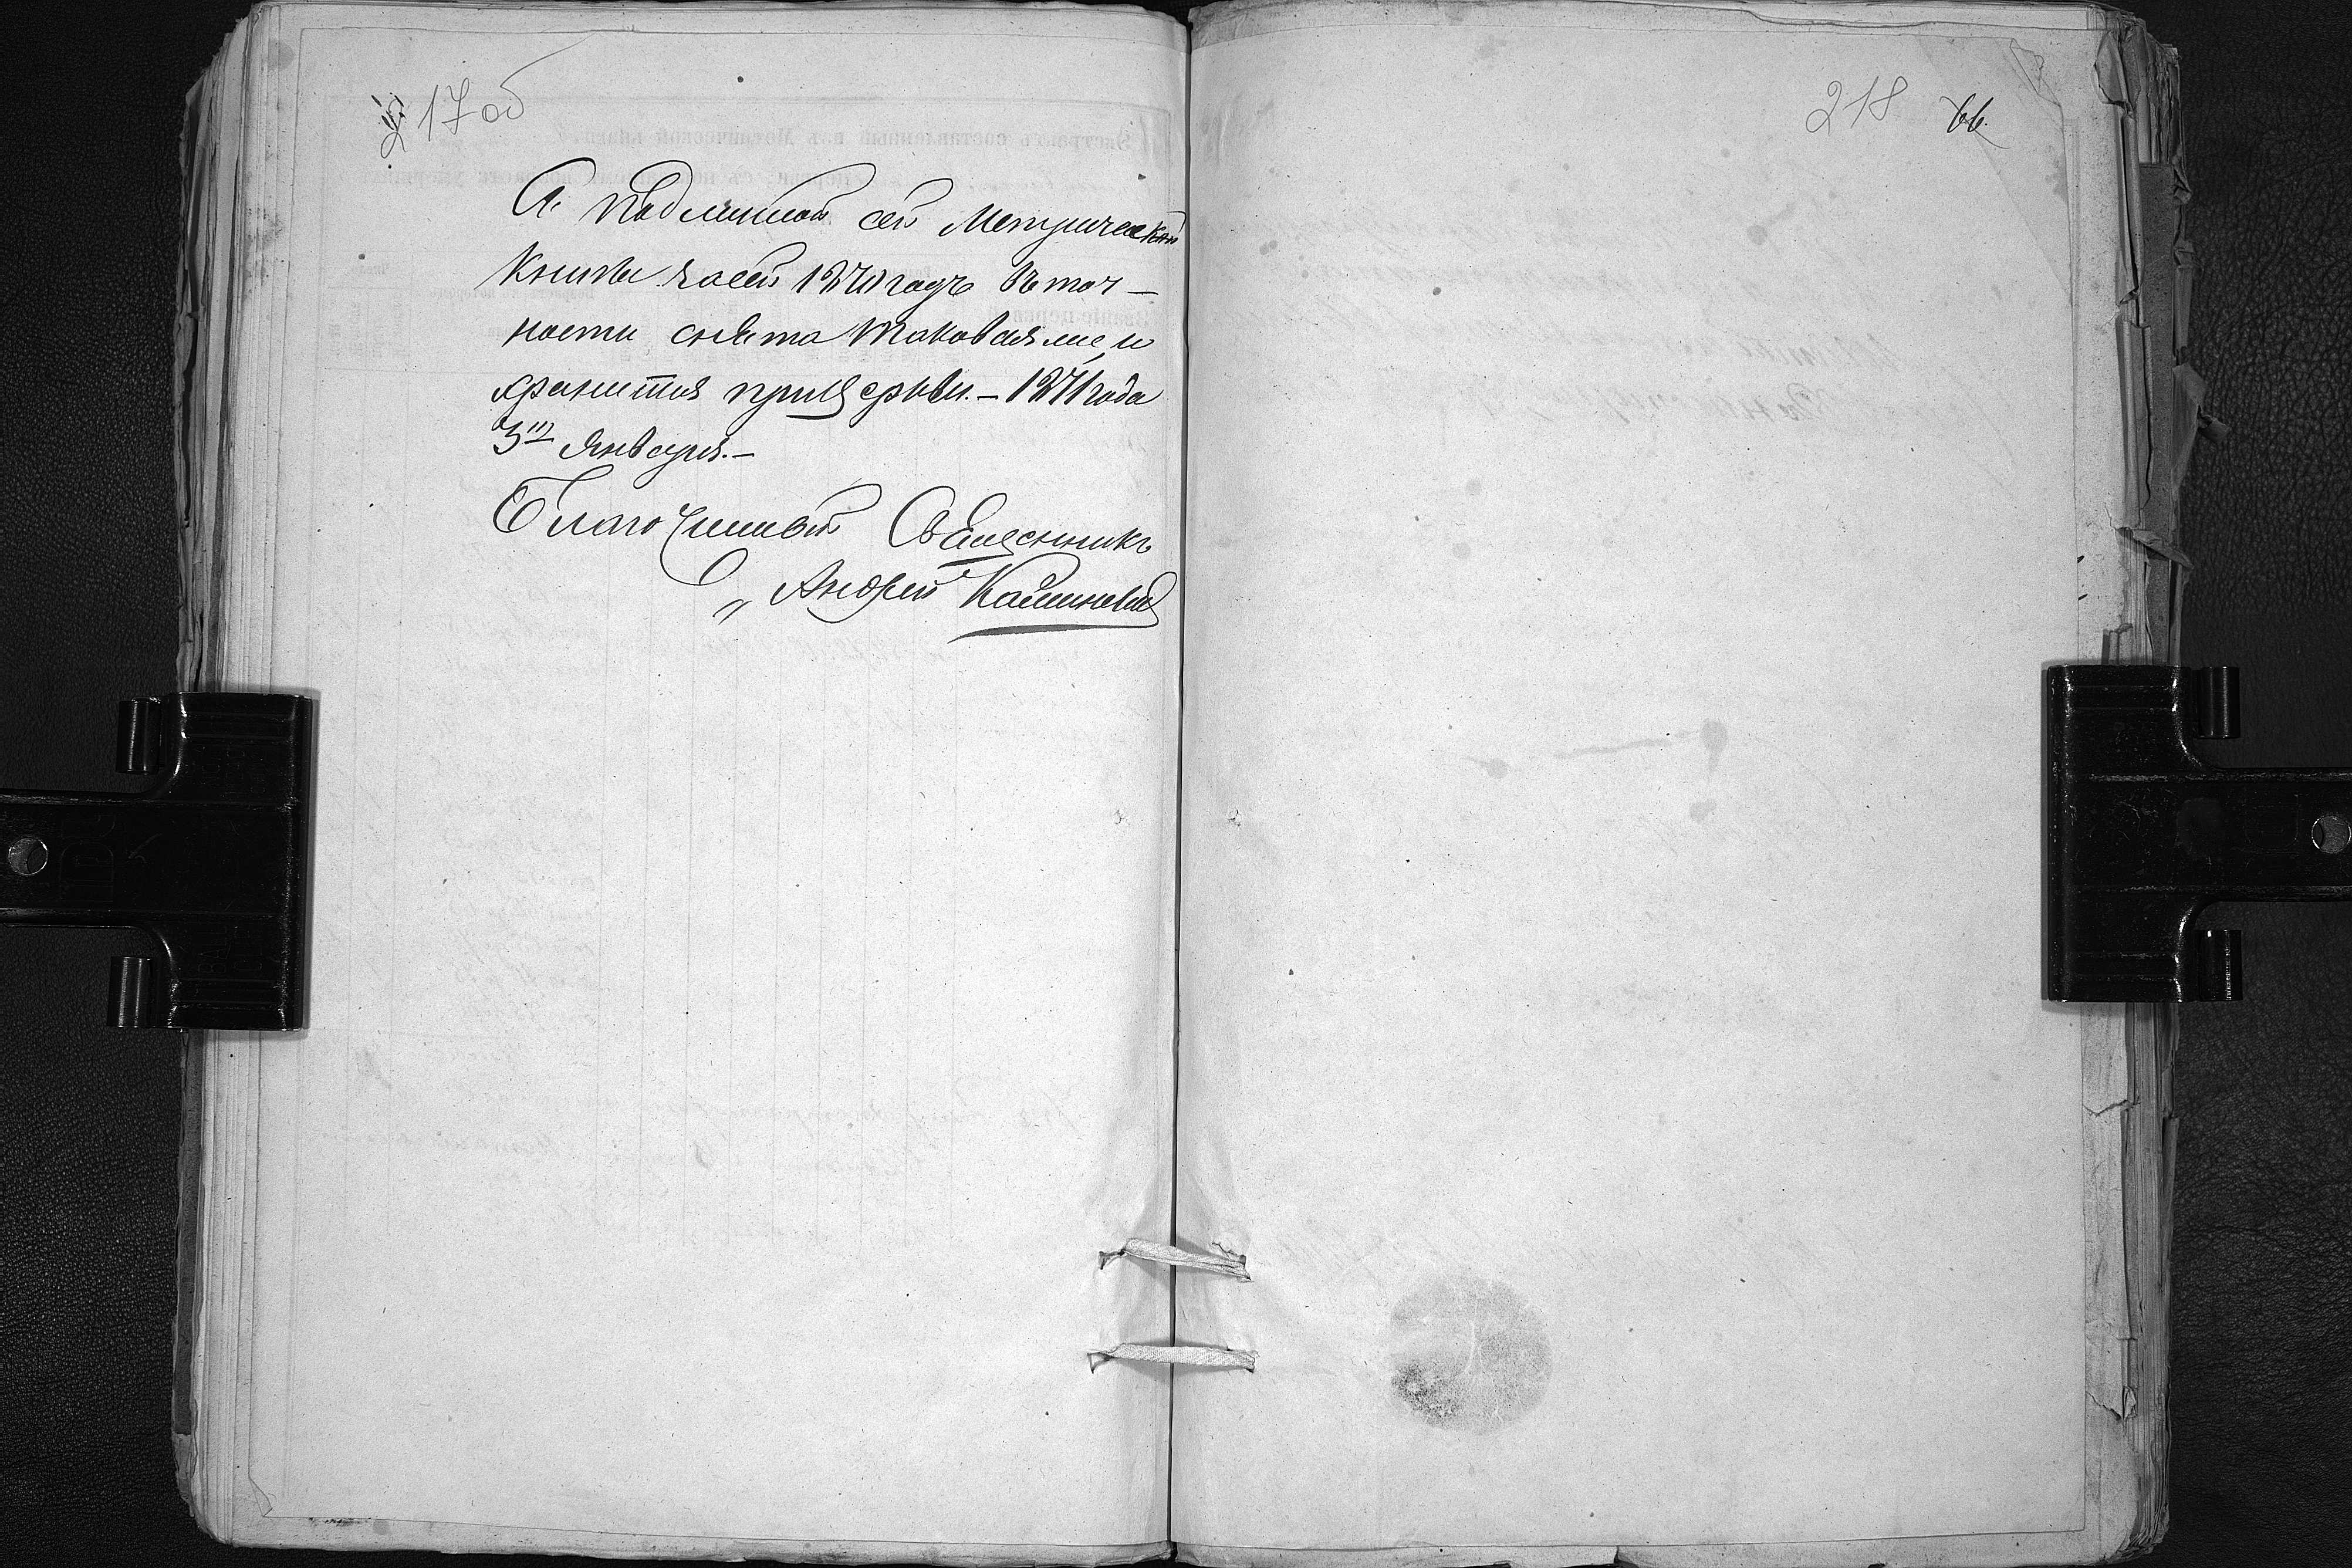 217 об
А подлинной сей Метрической
Книги за сей 1870 годъ въ точ-
ности снята таковая же и
хранится при Церкви. – 1871 года
3го Января. –
Благочинный Священникъ
Андрей
218 66.